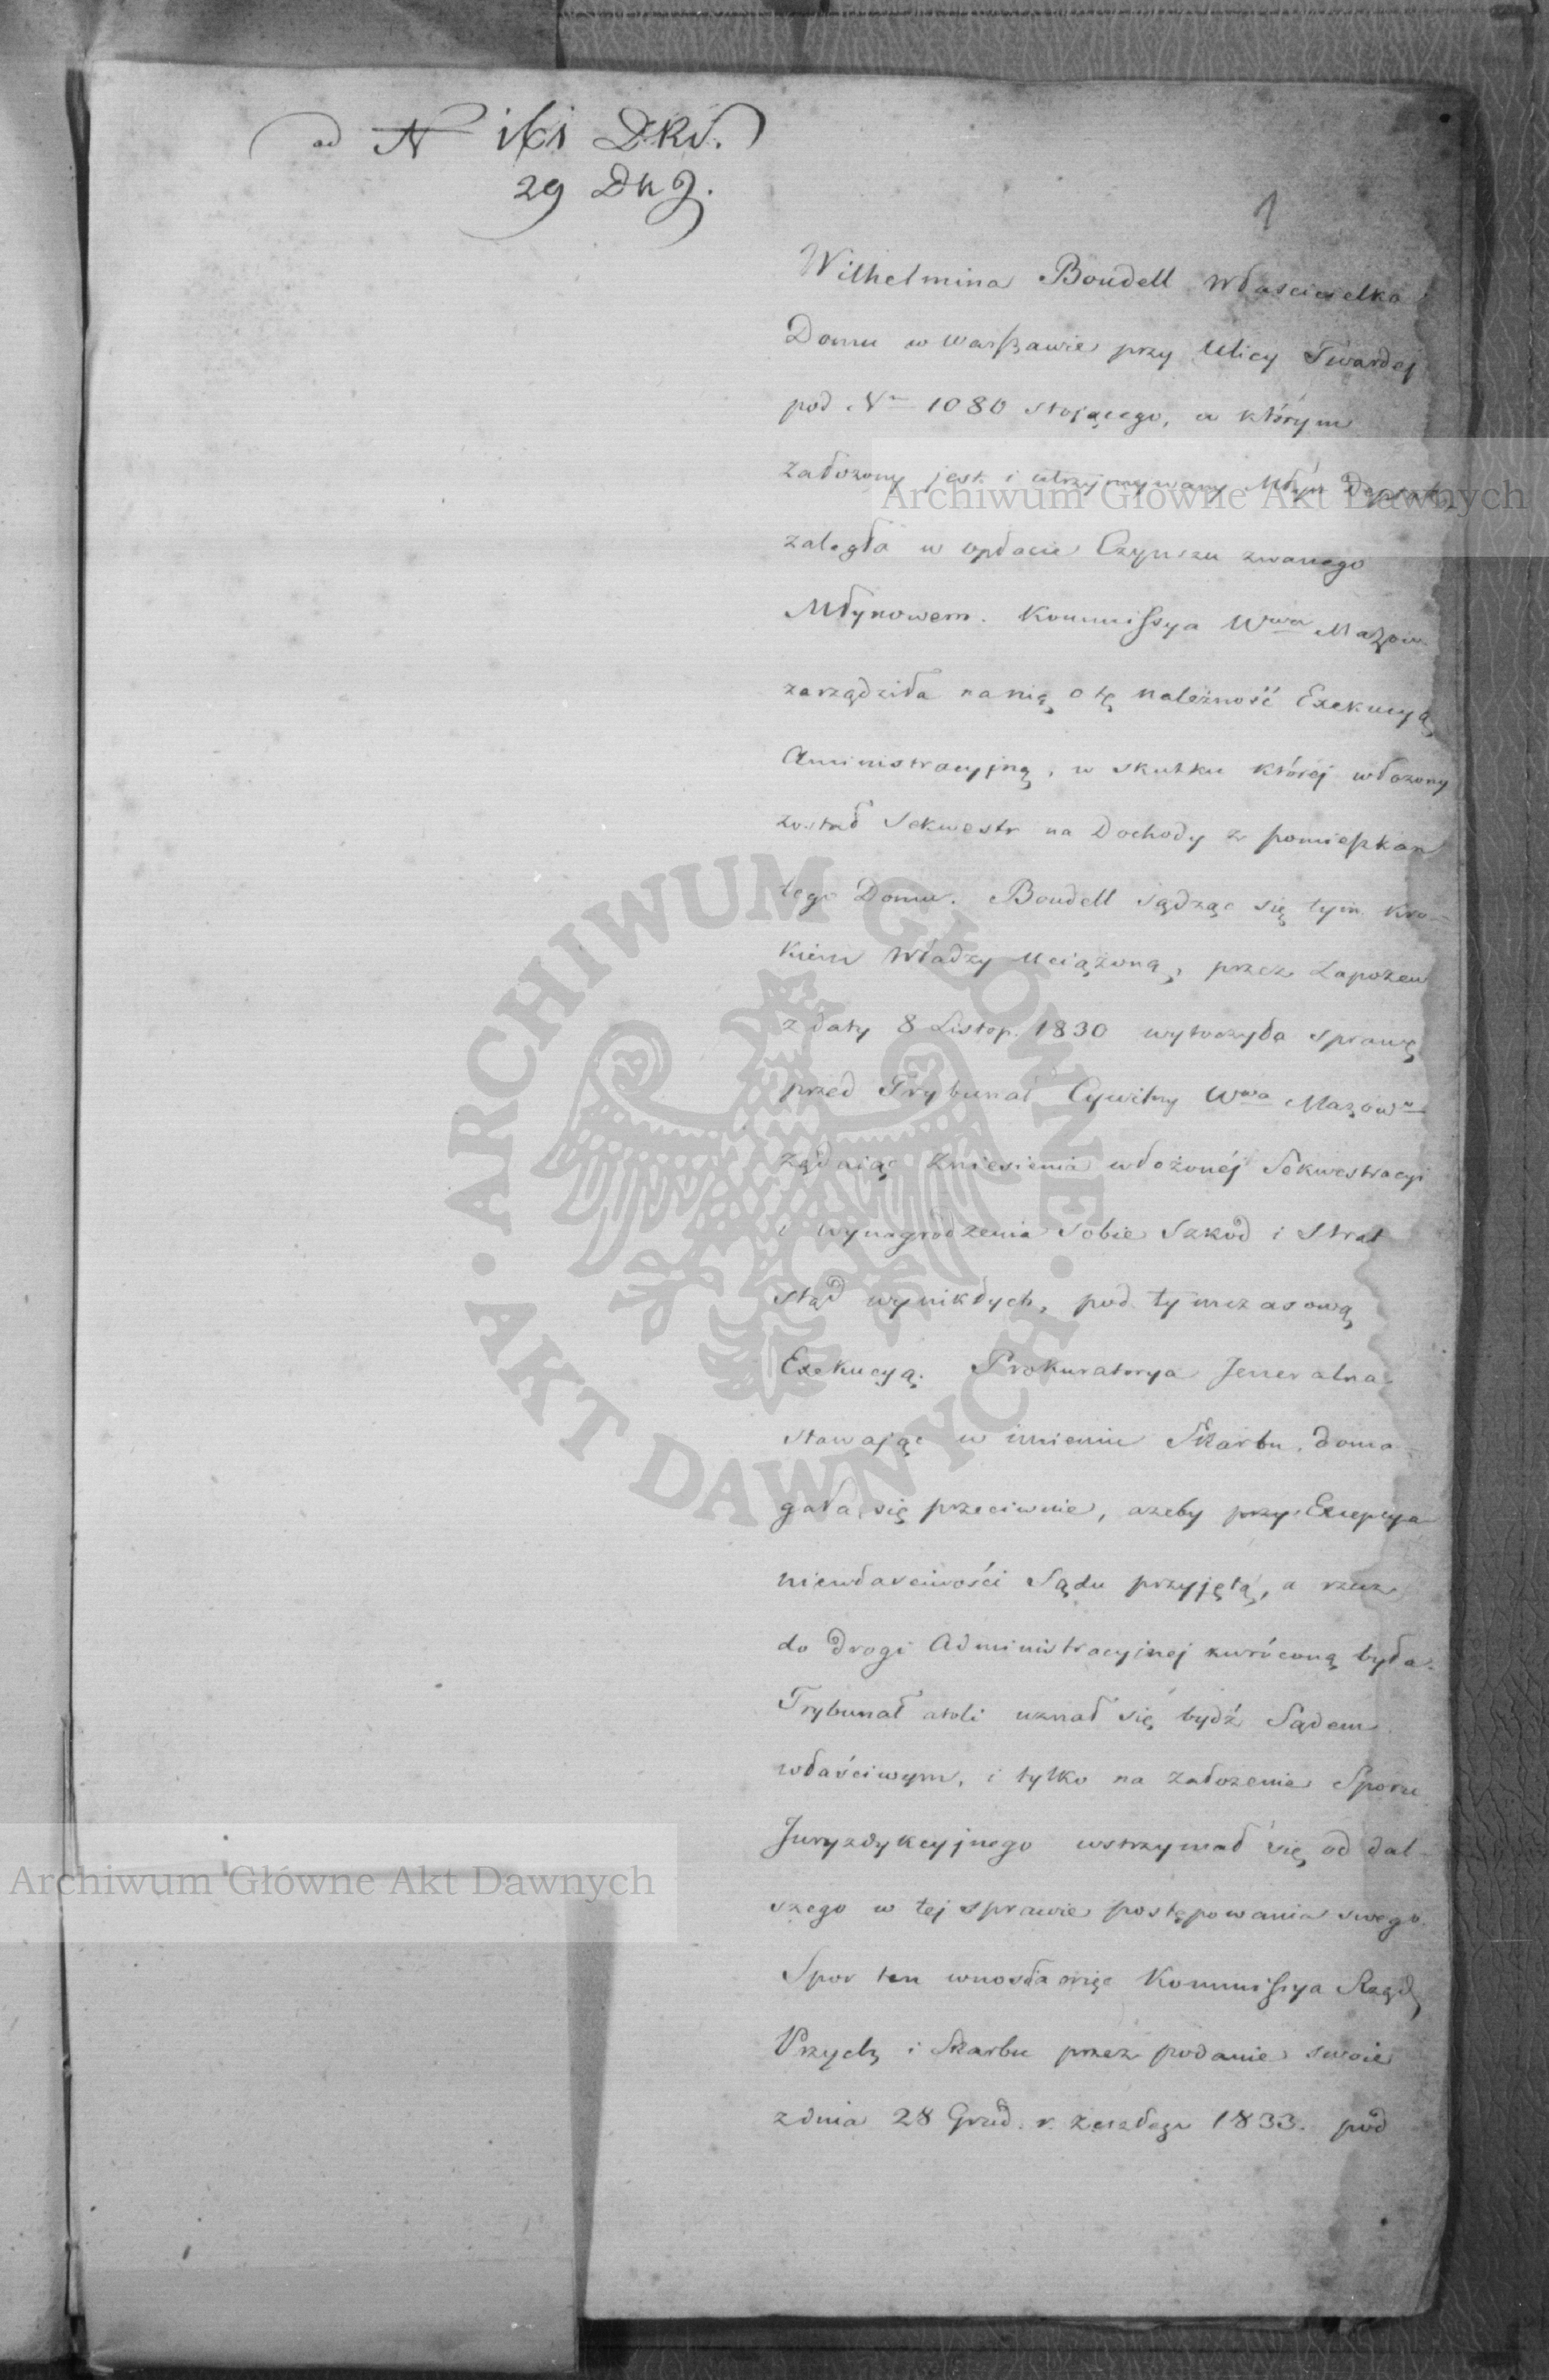 ad N 161 DKJ.
29 DKJ.
1
Wilhelmina Boudell Włascicielka
Domu w Warszawie przy Ulicy Twardej
pod Nr 1080 stojącego, w którym
założony jest i utrzymywany Młyn Deptak,
zaległa w opłacie Czynszu zwanego
Młynowem. Kommissya Wwa Mazow
zarządziła na nią o tę należność Exekucyą
Aministracyjną, w skutku której włożony
został Sekwestr na Dochody z pomieszkań
tego Domu. Boudell sądząc się tym kro-
kiem Władzy uciążoną, przez Zapozew
z daty 8 Listop. 1830 wytoczyła sprawę
przed Trybunał Cywilny Wwa Mazow
żądając zniesienia włożonéj Sekwestracyi
i wynagrodzenia sobie szkod i strat
stąd wynikłych, pod tymczasową
Exekucyą. Prokuratorya Jeneralna
stawając w imieniu Skarbu, doma-
gała się przeciwnie, ażeby przy Excepcya
niewłaściwości Sądu przyjętą, a rzecz
do drogi Administracyjnej zwróconą była.
Trybunał atoli uznał się bydź Sądem
właściwym, i tylko na założenie Sporu
Juryzdykcyjnego wstrzymał się od dal-
szego w tej sprawie postępowania swego.
Spor ten wnosła więc Kommissya Rządz
Przych i Skarbu przez podanie swoie
z dnia 28 Grud. r. zeszłego 1833. pod
Archiwum Główne Akt Dawnych
ARCHIWUM GŁÓWNE AKT DAWNYCH
Archiwum Główne Akt Dawnych